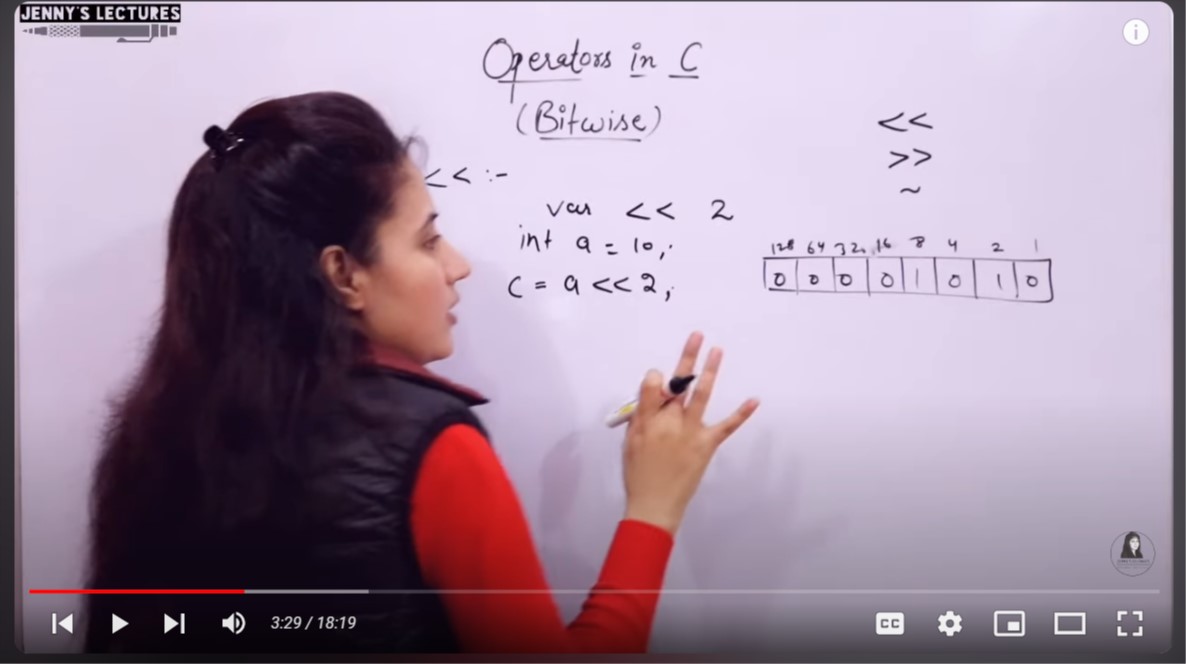 JENNY'S LECTURES
Operators in C
(Bitwise)
<<
>>
~
<< :-
var << 2
int a = 10;
c = a << 2;
128 64 32 16 8 4 2 1
0 0 0 0 1 0 1 0
3:29 / 18:19
CC